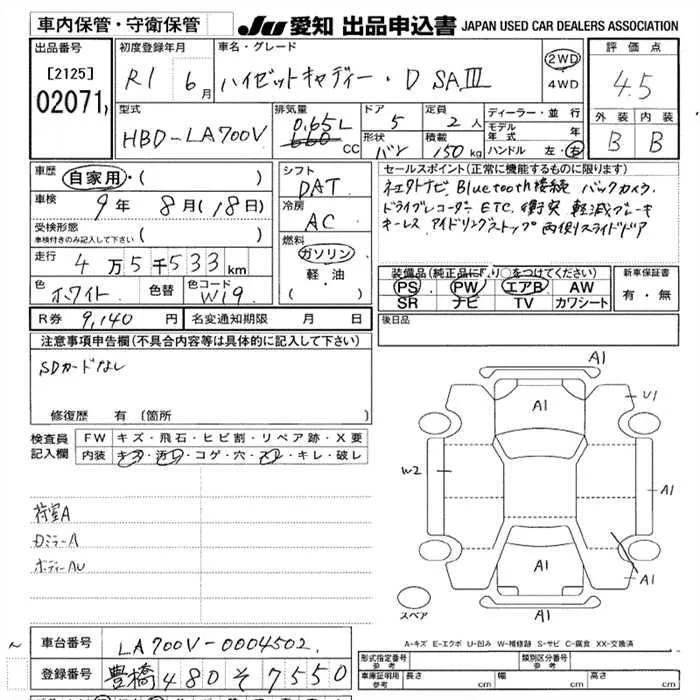 車内保管・守衛保管
JU 愛知 出品申込書 JAPAN USED CAR DEALERS ASSOCIATION
出品番号
[2125]
02071
初度登録年月
R1 6月
車名・グレード
ハイゼットキャディー・D SAⅢ
2WD
4WD
評価点
4.5
外装 内装
B B
型式
HBD-LA700V
排気量
0.65L
660 CC
ドア
5
定員
2人
形状
バン
積載
150kg
ディーラー・並行
モデル年式 年
ハンドル 左・右
車歴
自家用・( )
車検
9年 8月(18日)
受検形態
車検付きのみ記入して下さい ( )
走行
4万5千533km
色
ホワイト
色替
色コード
W19
シフト
DAT
冷房
AC
燃料
ガソリン
軽・油
( )
セールスポイント(正常に機能するものに限ります)
Bluetooth接続 バックカメラ.
ドライブレコーダー ETC. 衝突軽減ブレーキ
キーレス アイドリングストップ 両側スライドドア
装備品(純正品に限り○をつけてください)
PS PW エアB AW
SR ナビ TV カワシート
新車保証書
有・無
R券 9,140円
名変通知期限 月 日
後日品
注意事項申告欄(不具合内容等は具体的に記入して下さい)
SDカードなし
修復歴 有(箇所
検査員記入欄
FW キズ・飛石・ヒビ割・リペア跡・X要
内装 キズ・汚レ・コゲ・穴・スレ・キレ・破レ
荷室A
DミラーA
ボディーAU
A1
A1
U1
W2
A1
A1
A1
A1
スペア
A-キズ E-エクボ U-凹み W-補修跡 S-サビ C-腐食 XX-交換済
車台番号
LA700V-0004502
登録番号
豊橋 480 そ 7550
形式指定番号
参考
類別区分番号
参考
車庫証明用
参考
長さ cm
幅 cm
高さ cm